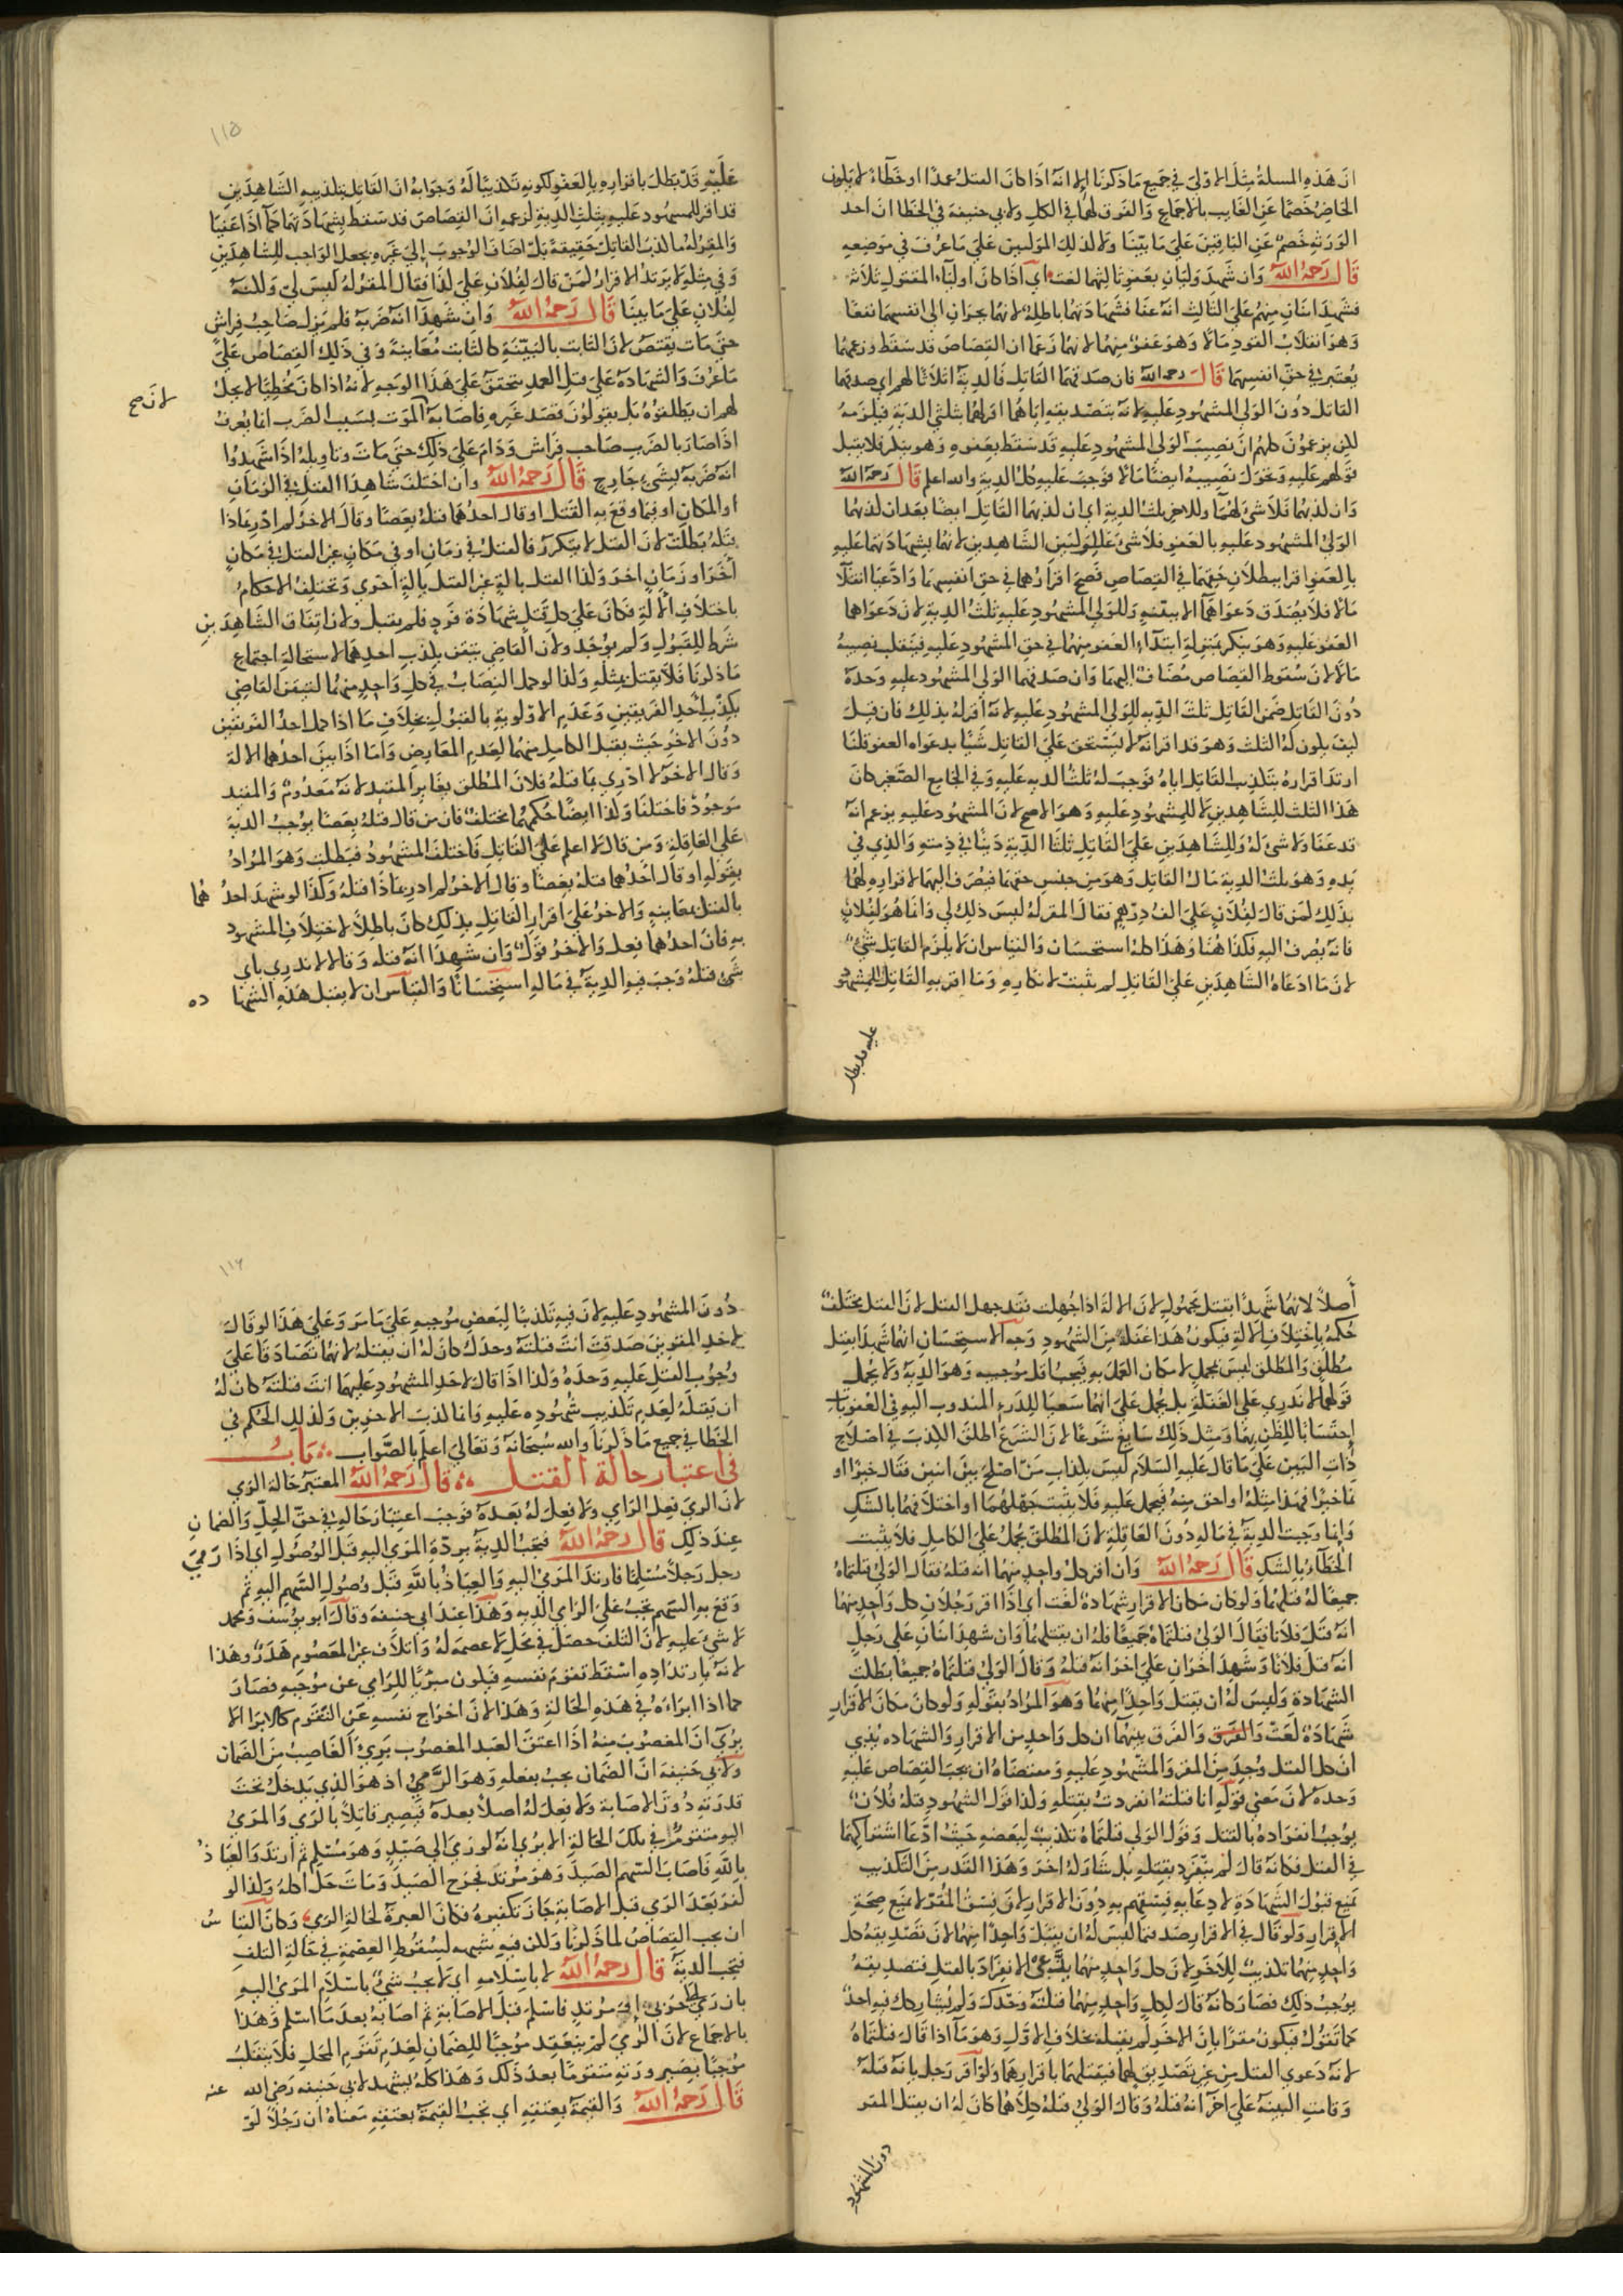 ان هذه المسلة مثل الاولى في جميع ما ذكرنا الا انه اذا كان القتل عمدا او خطاء لا يكون
الحاضر خصما عن الغايب بالاجماع والفرق لهما في الكل ولابي حنيفة في الخطا ان احد
الورثة خصم عن الباقين على ما بينا ولا لذلك الموليين على ما عرف في موضعه
قال رحمه الله وان شهد وليان بعفو ثالثهما لغت اي اذا كان اوليآء المقتول ثلاثة
فشهد اثنان منهم على الثالث انه عفا فشهادتهما باطلة لانهما يجران الى انفسهما نفعا
وهو انقلاب القود مالا وهو عفو منهما لانهما زعما ان القصاص قد سقط وزعمهما
يعتبر في حق انفسهما قال رحمه الله فان صدقهما القاتل فالدية اثلاثا لهم اي صدقهما
القاتل دون الولي المشهود عليه لانه بتصديقه اياهما اقر لهما بثلثي الدية فيلزمه
لكن يزعمون كلهم ان نصيب الولي المشهود عليه قد سقط بعفوه وهو ينكر فلا يقبل
قولهم عليه وتحول نصيبه ايضا مالا فوجب عليه كل الدية والله اعلم قال رحمه الله
وان كذبهما فلا شئ لهما وللاخر ثلث الدية اي ان كذبهما القاتل ايضا بعد ان كذبهما
الولي المشهود عليه بالعفو فلا شئ للوليين الشاهدين لانهما بشهادتهما عليه
بالعفو اقرا ببطلان حقهما في القصاص فصح اقرارهما في حق انفسهما وادعيا انقلابه
مالا فلا يصدق دعواهما الا ببينة وللولي المشهود عليه ثلث الدية لان دعواهما
العفو عليه وهو ينكر بمنزلة ابتداء العفو منهما في حق المشهود عليه فينقلب نصيبه
مالا لان سقوط القصاص مضاف اليهما وان صدقهما الولي المشهود عليه وحده
دون القاتل ضمن القاتل ثلث الدية للولي المشهود عليه لانه اقر له بذلك فان قيل
كيف يكون له الثلث وهو قد اقر انه لا يستحق على القاتل شيا بدعواه العفو قلنا
ارتد اقراره بتكذيب القاتل اياه فوجب له ثلث الدية عليه وفي الجامع الصغير كان
هذا الثلث للشاهدين لا للمشهود عليه وهو الاصح لان المشهود عليه يزعم انه
قد عفا ولا شئ له وللشاهدين على القاتل ثلثا الدية دينا في ذمته والذي في
يده وهو ثلث الدية مال القاتل وهو من جنس حقهما فيصرف اليهما لاقراره لهما
بذلك كمن قال لفلان على الف درهم فقال المقر له ليس ذلك لي وانما هو لفلان
فانه يصرف اليه فكذا هنا وهذا كله استحسان والقياس ان لا يلزم القاتل شئ
لان ما ادعاه الشاهدين على القاتل لم يثبت لانكاره وما اقر به القاتل للمشهود
عليه قد بطل
١١٥
عليه قد بطل باقراره بالعفو لكونه تكذيبا له وجوابه ان القاتل بتكذيبه الشاهدين
قد اقر للمشهود عليه بثلث الدية لزعمه ان القصاص قد سقط بشهادتهما كما اذا عفيا
والمقر له ما كذب القاتل حقيقة بل اضاف الوجوب الى غيره بجعل الواجب للشاهدين
وفي مثله لا يرتد الاقرار كمن قال لفلان على كذا فقال المقر له ليس لي ولكنه
لفلان على ما بينا قال رحمه الله وان شهدا انه ضربه فلم يزل صاحب فراش
حتى مات يقتص لان الثابت بالبينة كالثابت معاينة وفي ذلك القصاص على
ما عرف والشهادة على قتل العمد تتحقق على هذا الوجه لانه اذا كان مخطيا لا يحل
لهم ان يطلقوه بل يقولون قصد غيره فاصابه الموت بسبب الضرب انما يعرف
لان صح
اذا صار بالضرب صاحب فراش ودام على ذلك حتى مات وتاويله اذا شهدوا
انه ضربه بشئ جارح قال رحمه الله وان اختلف شاهدا القتل في الزمان
او المكان او فيما وقع به القتل او قال احدهما قتله بعصا وقال الاخر لم ادر بماذا
قتله بطلت لان القتل لا يتكرر فالقتل في زمان او في مكان غير القتل في مكان
آخر او زمان اخر وكذا القتل بالة غير القتل بالة اخرى وتختلف الاحكام
باختلاف الالة فكان على كل قتل شهادة فرد فلم يقبل ولان اتفاق الشاهدين
شرط للقبول ولم يوجد ولان القاضي يتيقن بكذب احدهما لاستحالة اجتماع
ما ذكرنا فلا يقبل بمثله وكذا لو كمل النصاب في كل واحد منهما لتيقن القاضي
بكذب احد الفريقين وعدم الاولوية بالقبول بخلاف ما اذا كمل احد الفريقين
دون الاخر حيث يقبل الكامل منهما لعدم المعارض واما اذا بين احدهما الالة
وقال الاخر لا ادري بما قتله فلان المطلق يغاير المقيد لانه معدوم والمقيد
موجود فاختلفا وكذا ايضا حكمهما مختلف فان من قال قتله بعصا يوجب الدية
على العاقلة ومن قال لا اعلم على القاتل فاختلف المشهود فبطلت وهو المراد
بقوله او قال احدهما قتله بعصا وقال الاخر لم ادر بماذا قتله وكذا لو شهد احد هما
بالقتل معاينة والاخر على اقرار القاتل بذلك كان باطلا لاختلاف المشهود
به فان احدهما فعل والاخر قول وان شهدا انه قتله وقالا لا ندري باي
شئ قتله وجب فيه الدية في ماله استحسانا والقياس ان لا يقبل هذه الشها ده
أصلا لانهما شهدا بقتل مجهول لان الالة اذا جهلت فقد جهل القتل لان القتل يختلف
حكمه باختلاف الالة فيكون هذا غفلة من الشهود وجه الاستحسان انهما شهدا بقتل
مطلق والمطلق ليس بمجمل لامكان العمل به فيجب اقل موجبيه وهو الدية ولا يحمل
قولهما لا ندري على الغفلة بل يحمل على انهما سعيا للدرء المندوب اليه في العقوبات
احتسابا للظن بهما ومثل ذلك سايغ شرعا لان الشرع اطلق الكذب في اصلاح
ذات البين على ما قال عليه السلام ليس بكذاب من اصلح بين اثنين فقال خيرا او
نما خيرا فهذا مثله او احق منه فيحمل عليه فلا يثبت جهلهما او اختلافهما بالشك
وانما وجبت الدية في ماله دون العاقلة لان المطلق يحمل على الكامل فلا يثبت
الخطاء بالشك قال رحمه الله وان اقر كل واحد منهما انه قتله فقال الولي قتلتماه
جميعا له قتلهما ولو كان مكان الاقرار شهادة لغت اي اذا اقر رجلان كل واحد منهما
انه قتل فلانا فقال الولي قتلتماه جميعا فله ان يقتلهما وان شهد اثنان على رجل
انه قتل فلانا وشهد اخران على اخر انه قتله وقال الولي قتلتماه جميعا بطلت
الشهادة وليس له ان يقتل واحدا منهما وهو المراد بقوله ولو كان مكان الاقرار
شهادة لغت والفرق والفرق بينهما ان كل واحد من الاقرار والشهاده يثبي
ان كل القتل وجد من المقر والمشهود عليه ومقتضاه ان يجب القصاص عليه
وحده لان معنى قوله انا قتلته انفردت بقتله وكذا قول الشهود قتله فلان
يوجب انفراده بالقتل وقول الولي قتلتماه تكذيب لبعضه حيث ادعا اشتراكهما
في القتل فكانه قال لم ينفرد بقتله بل شاركه اخر وهذا القدر من التكذيب
يمنع قبول الشهادة لادعايه فسقهم به دون الاقرار لان فسق المقر لا يمنع صحة
الاقرار ولو قال في الاقرار صدقتما ليس له ان يقتل واحدا منهما لان تصديقه كل
واحد منهما تكذيب للاخر لان كل واحد منهما يدعي الانفراد بالقتل فتصديقه
يوجب ذلك فصار كانه قال لكل واحد منهما قتلته وحدك ولم يشاركك فيه احد
كما تقول فيكون مقرا بان الاخر لم يقتله بخلاف الاول وهو ما اذا قال قتلتماه
لانه دعوى القتل من غير تصديق لهما فيقتلهما باقرارهما ولو اقر رجل بانه قتله
وقامت البينة على اخر انه قتله وقال الولي قتله كلاهما كان له ان يقتل المقر
دون المشهود
١١٦
دون المشهود عليه لان فيه تكذيبا لبعض موجبه على ما مر وعلى هذا لو قال
لاحد المقرين صدقت انت قتلته وحدك كان له ان يقتله لانهما تصادقا على
وجوب القتل عليه وحده وكذا اذا قال لاحد المشهود عليهما انت قتلته كان له
ان يقتله لعدم تكذيب شهوده عليه وانما كذب الاخرين وكذلك الحكم في
الخطا في جميع ما ذكرنا والله سبحانه وتعالى اعلم بالصواب باب
في اعتبار حالة القتل قال رحمه الله المعتبر حالة الرمي
لان الرمي فعل الرامي ولا فعل له بعده فوجب اعتبار حاله في حق الحل والضمان
عند ذلك قال رحمه الله فتجب الدية بردة المرمي اليه قبل الوصول اي اذا رمى
رجل رجلا مسلما فارتد المرمي اليه والعياذ بالله قبل وصول السهم اليه ثم
وقع به السهم تجب على الرامي الدية وهذا عند ابي حنيفة وقال ابو يوسف ومحمد
لا شئ عليه لان التلف حصل في محل لا عصمة له واتلاف غير المعصوم هدر وهذا
لانه بارتداده اسقط تقوم نفسه فيكون مبريا للرامي عن موجبه فصار
كما اذا ابراءه في هذه الحالة وهذا لان اخراج نفسه عن التقوم كالابرا الا
يرى ان المغصوب منه اذا اعتق العبد المغصوب برئ الغاصب من الضمان
ولابي حنيفة ان الضمان يجب بفعله وهو الرمي اذ هو الذي يدخل تحت
قدرته دون الاصابة ولا فعل له اصلا بعده فيصير قاتلا بالرمي والمرمي
اليه متقوم في تلك الحالة الا يرى انه لو رمى الى صيد وهو مسلم ثم ارتد والعياذ
بالله فاصاب السهم الصيد وهو مرتد فجرح الصيد ومات حل اكله وكذا لو
كفر بعد الرمي قبل الاصابة جاز تكفيره فكان العبرة لحالة الرمي وكان القيا س
ان يجب القصاص لما ذكرنا ولكن فيه شبهه لسقوط العصمة في حالة التلف
فتجب الدية قال رحمه الله لا باسلامه اي لا يجب شئ باسلام المرمي اليه
بان رمى الى حربي او مرتد فاسلم قبل الاصابة ثم اصابه بعد ما اسلم وهذا
بالاجماع لان الرمي لم ينعقد موجبا للضمان لعدم تقوم المحل فلا ينقلب
موجبا بصيرورته متقوما بعد ذلك وهذا كله يشهد لابي حنيفه رضي الله عنه
قال رحمه الله والقيمة بعتقه اي تجب القيمة بعتقه معناه ان رجلا لو